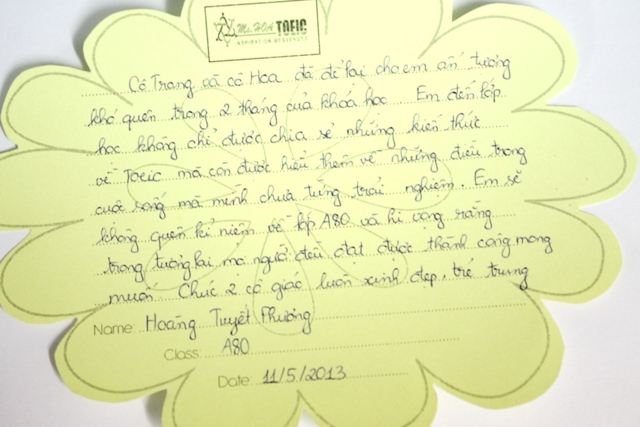 Ms. HOA TOEIC
ASPIRATION MESSENGER
Cô Trang và cô Hoa đã để lại cho em ấn tượng
khó quên trong 2 tháng của khoá học. Em đến lớp
học không chỉ được chia sẻ những kiến thức
về Toeic mà còn được hiểu thêm về những điều trong
cuộc sống mà mình chưa từng trải nghiệm. Em sẽ
không quên kỉ niệm về lớp A80 và hi vọng rằng
trong tương lai mọi người đều đạt được thành công mong
muốn. Chúc 2 cô giáo luôn xinh đẹp, trẻ trung
Name: Hoàng Tuyết Phương
Class: A80
Date: 11/5/2013